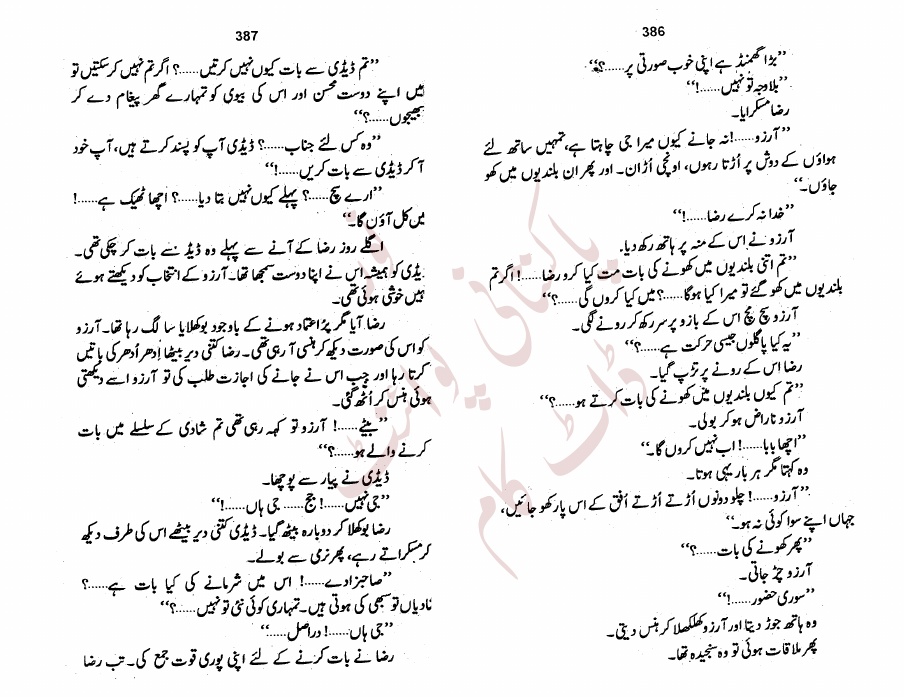 386
”بڑا گھمنڈ ہے اپنی خوب صورتی پر......؟“
”بلاوجہ تو نہیں......!“
رضا مسکرایا۔
”آرزو......! نہ جانے کیوں میرا جی چاہتا ہے، تمہیں ساتھ لئے
ہواؤں کے دوش پر اُڑتا رہوں، اونچی اُڑان۔ اور پھر ان بلندیوں میں کھو
جاؤں۔“
”خدا نہ کرے رضا......!“
آرزو نے اس کے منہ پر ہاتھ رکھ دیا۔
”تم اتنی بلندیوں میں کھونے کی بات مت کیا کرو رضا......! اگر تم
بلندیوں میں کھو گئے تو میرا کیا ہوگا......؟ میں کیا کروں گی......؟“
آرزو سچ مچ اس کے بازو پر سر رکھ کر رونے لگی۔
”یہ کیا پاگلوں جیسی حرکت ہے......؟“
رضا اس کے رونے پر تڑپ گیا۔
”تم کیوں بلندیوں میں کھونے کی بات کرتے ہو......؟“
آرزو ناراض ہو کر بولی۔
”اچھا بابا......! اب نہیں کروں گا۔“
وہ کہتا مگر ہر بار یہی ہوتا۔
”آرزو......! چلو دونوں اُڑتے اُڑتے اُفق کے اس پار کھو جائیں،
جہاں اپنے سوا کوئی نہ ہو۔“
”پھر کھونے کی بات......؟“
آرزو چڑ جاتی۔
”سوری حضور......!“
وہ ہاتھ جوڑ دیتا اور آرزو کھلکھلا کر ہنس دیتی۔
پھر ملاقات ہوئی تو وہ سنجیدہ تھا۔
387
”تم ڈیڈی سے بات کیوں نہیں کرتیں......؟ اگر تم نہیں کر سکتیں تو
میں اپنے دوست محسن اور اس کی بیوی کو تمہارے گھر پیغام دے کر
بھیجوں......؟“
”وہ کس لئے جناب......؟ ڈیڈی آپ کو پسند کرتے ہیں، آپ خود
آ کر ڈیڈی سے بات کریں......!“
”ارے سچ......؟ پہلے کیوں نہیں بتا دیا......؟ اچھا ٹھیک ہے......!
میں کل آؤں گا۔“
اگلے روز رضا کے آنے سے پہلے وہ ڈیڈ سے بات کر چکی تھی۔
یڈی کو ہمیشہ اس نے اپنا دوست سمجھا تھا۔ آرزو کے انتخاب کو دیکھتے ہوئے
نہیں خوشی ہوئی تھی۔
رضا آیا مگر پُراعتماد ہونے کے باوجود بوکھلایا سا لگ رہا تھا۔ آرزو
کو اس کی صورت دیکھ کر ہنسی آ رہی تھی۔ رضا کتنی دیر بیٹھا اِدھر اُدھر کی باتیں
کرتا رہا اور جب اس نے جانے کی اجازت طلب کی تو آرزو اسے دیکھتی
ہوئی ہنس کر اُٹھ گئی۔
”بیٹے......! آرزو تو کہہ رہی تھی تم شادی کے سلسلے میں بات
کرنے والے ہو......؟“
ڈیڈی نے پیار سے پوچھا۔
”جی نہیں......! جج...... جی ہاں......!“
رضا بوکھلا کر دوبارہ بیٹھ گیا۔ ڈیڈی کتنی دیر بیٹھے اس کی طرف دیکھ
کر مسکراتے رہے، پھر نرمی سے بولے۔
”صاحبزادے......! اس میں شرمانے کی کیا بات ہے......؟
نادیاں تو سبھی کی ہوتی ہیں۔ تمہاری کوئی نئی تو نہیں......؟“
”جی ہاں......! دراصل......“
رضا نے بات کرنے کے لئے اپنی پوری قوت جمع کی۔ تب رضا
پاکستانی پوائنٹ
ڈاٹ کام